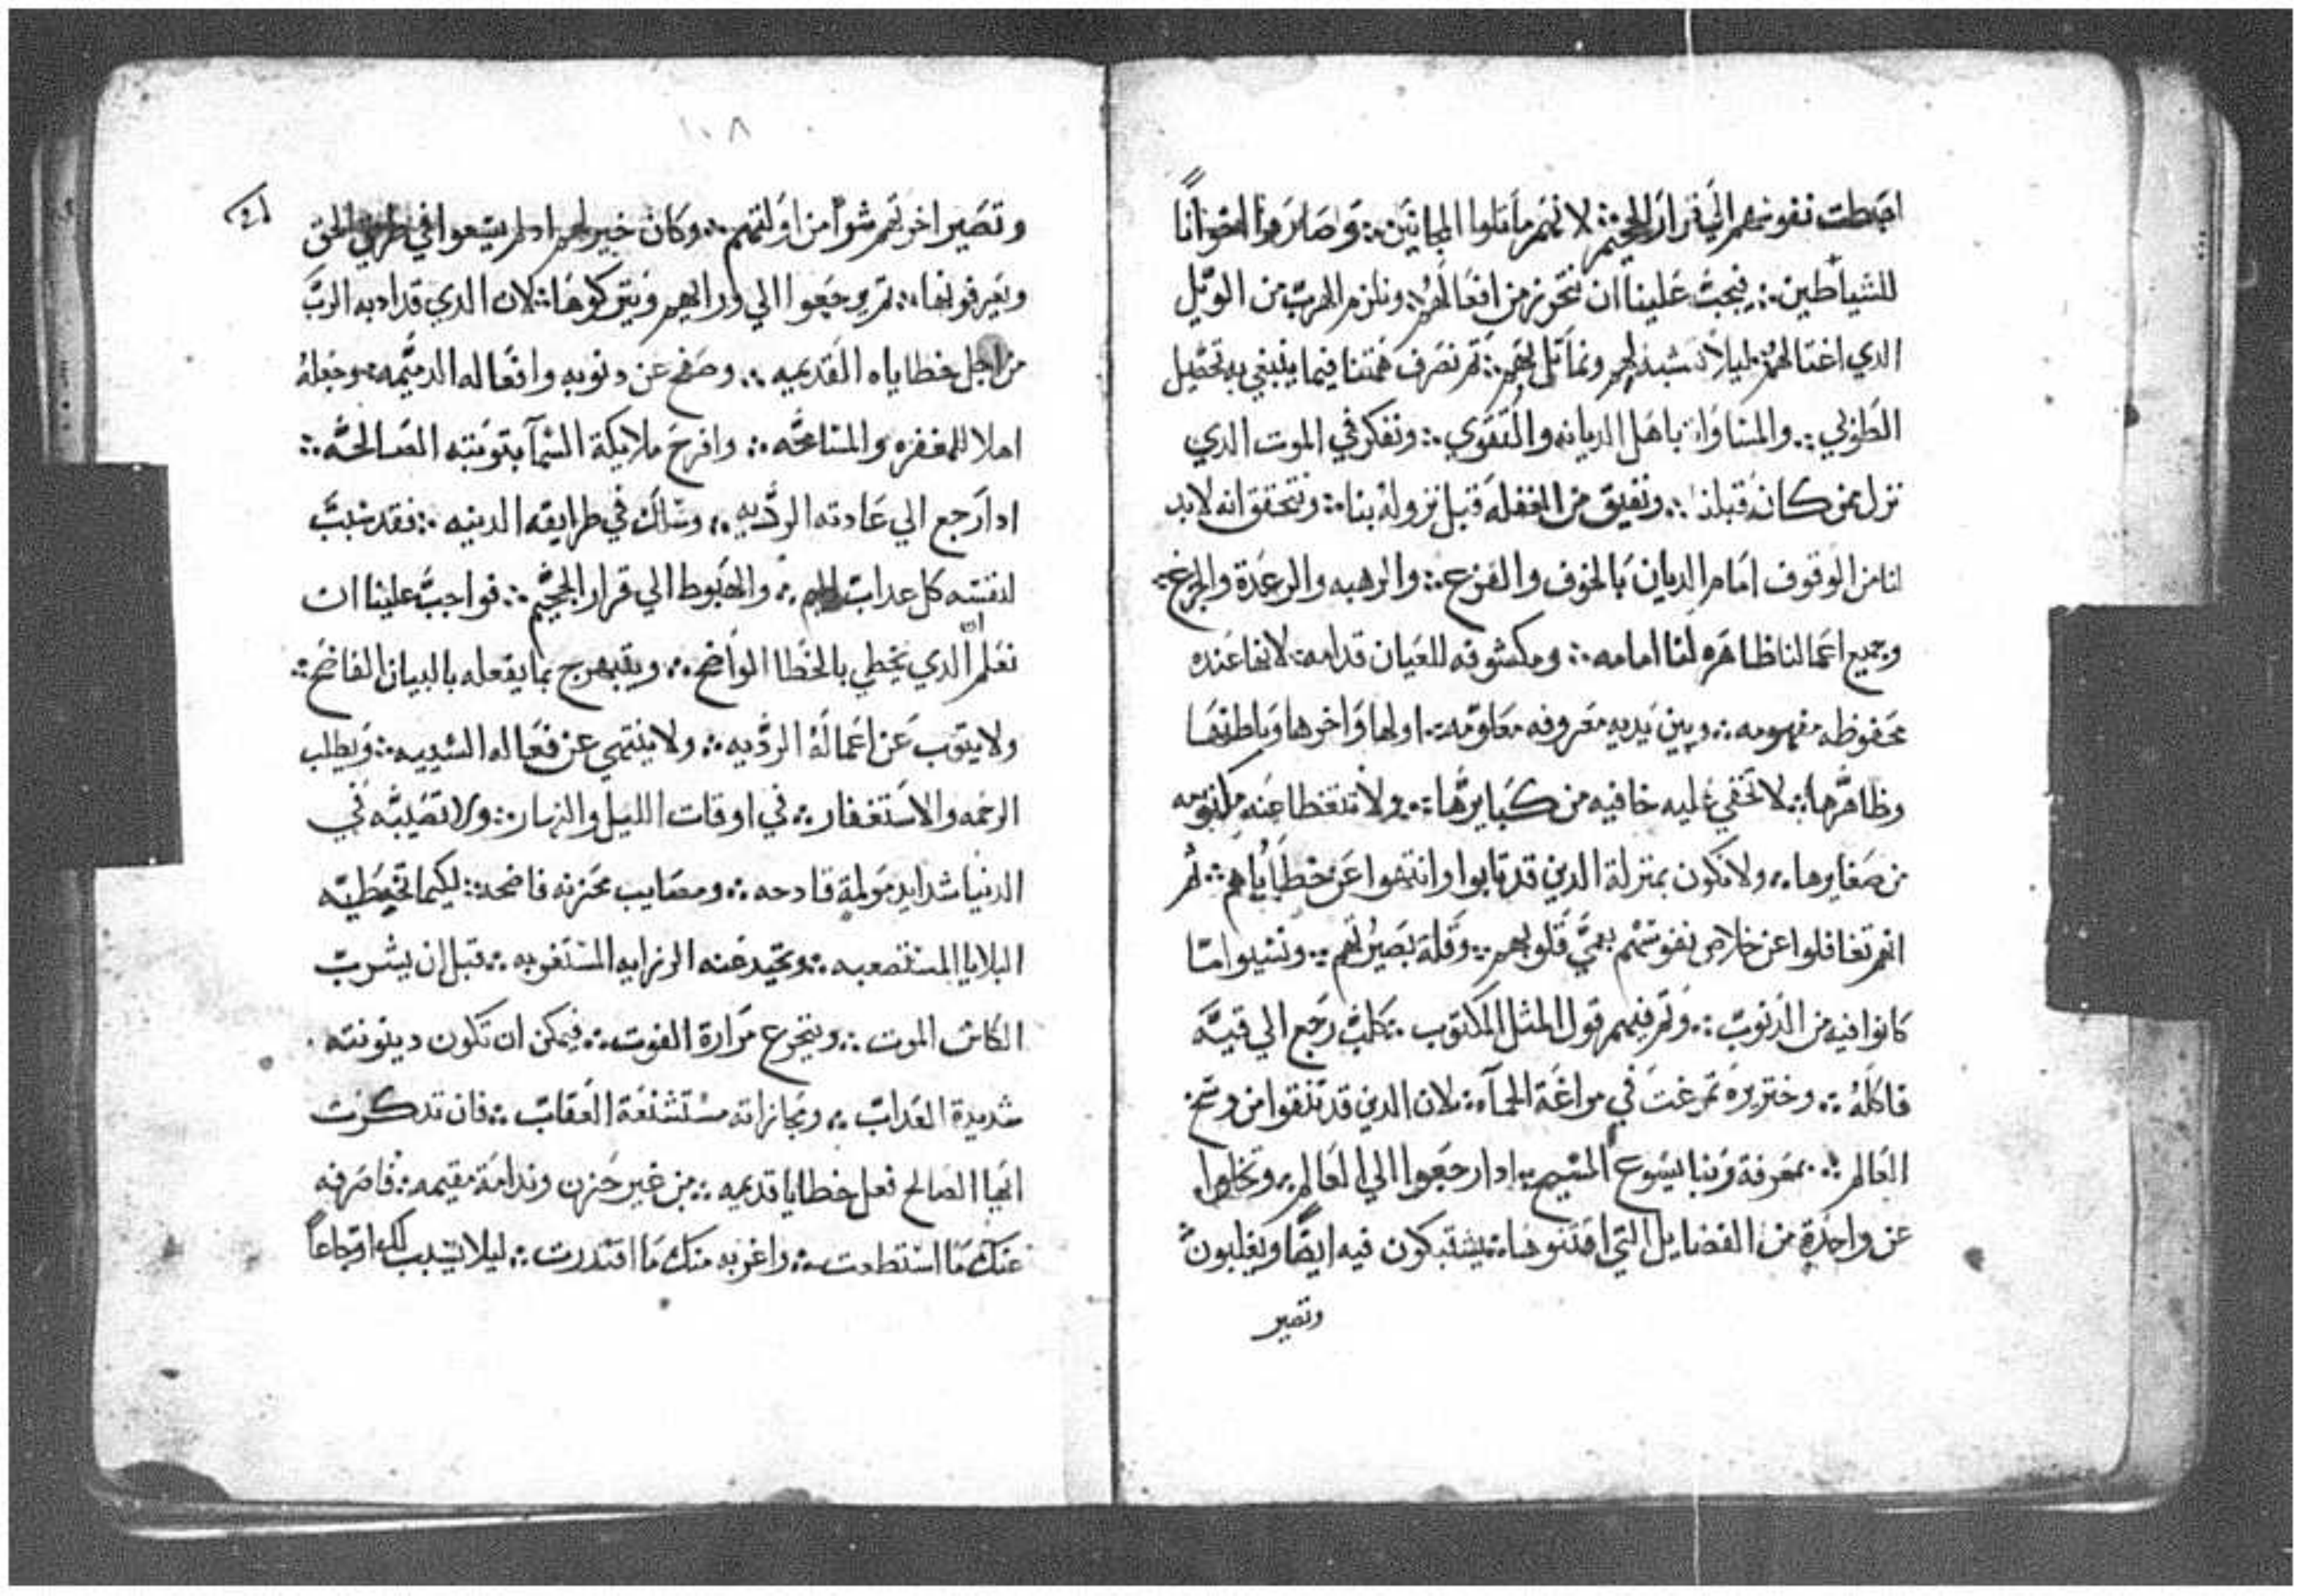 اهبطت نفوسهم الي قرار الجحيم ؞ لانهم ماثلوا المجانين ؞ وصاروا اخوانا
للشياطين ؞ فيجب علينا ان نتحرز من افعالهم ؞ ونلزم الهرب من الويل
الذي اغتالهم ليلا نتشبه لهم ونماثل بهم ؞ ثم نصرف همتنا فيما ينبغي به تحصيل
الطوبي ؞ والمساواه باهل الديانه والتقوي ؞ ونفكر في الموت الدي
نزل بمن كان قبلنا ؞ ونفيق من الغفله قبل نزوله بنا ؞ ونتحقق انه لابد
لنا من الوقوف امام الديان بالخوف والفزع ؞ والرهبه والرعدة والجزع ؞
وجميع اعمالنا ظاهره لنا امامه ؞ ومكشوفه للعيان قدامه ؞ لانها عنده
محفوظه مفهومه ؞ وبين يديه معروفه معلومه ؞ اولها واخرها وباطنها
وظاهرها ؞ لا تخفي عليه خافيه من كبايرها ؞ ولا تتغطا عنه مكتومه
من صغايرها ؞ ولا نكون بمنزلة الدين قد تابوا وانتهوا عن خطاياهم ؞ ثم
انهم تغافلوا عن خلاص نفوسهم بعمي قلوبهم ؞ وقلة بصيرتهم ؞ ونسيوا ما
كانوا فيه من الدنوب ؞ وتم فيهم قول المثل المكتوب ؞ كلب رجع الي قيه
فاكله ؞ وخنزيره تمرغت في مراغة الحمآه ؞ لان الدين قد تنقوا من وسخ
العالم ؞ بمعرفة ربنا يسوع المسيح ؞ ادا رجعوا الي العالم ؞ وتخلوا
عن واحدة من الفضايل التي اقتنوها ؞ يشتبكون فيه ايضا ويغلبون
وتصير
١٠٨
وتصير اخرتهم شرا من اولتهم ؞ وكان خير لهم اد لم يسعوا في طريق الحق
ويعرفونها ؞ ثم يرجعوا الي ورايهم ويتركوها ؞ لان الدي قد ادبه الرب
من اجل خطاياه القديمه ؞ وصفح عن دنوبه وافعاله الدميمه ؞ وجعله
اهلا للمغفره والمسامحه ؞ وافرح ملايكة السمآ بتوبته الصالحه ؞
ادا رجع الي عادته الرديه ؞ وسلك في طرايقه الدنيه ؞ فقد سبب
لنفسه كل عداب اليم ؞ والهبوط الي قرار الجحيم ؞ فواجب علينا ان
نعلم ان الدي يخطي بالخطا الواضح ؞ ويتبهرج بما يفعله بالبيان الفاضح ؞
ولا يتوب عن اعماله الرديه ؞ ولا ينتهي عن فعاله السييه ؞ ويطلب
الرحمه والاستغفار ؞ في اوقات الليل والنهار ؞ ولا تصيبه في
الدنيا شدايد مولمة قادحه ؞ ومصايب محزنه فاضحه ؞ ليكيما تخطيه
البلايا المستصعبه ؞ وتحيد عنه الرزايه المستغربه ؞ قبل ان يشرب
الكاس الموت ؞ ويتجرع مرارة الفوت ؞ فيمكن ان تكون دينونته
شديدة العداب ؞ ومجازاته مستشنعة العقاب ؞ فان تدكرت
ايها الصالح فعل خطايا قديمه ؞ من غير حزن وندامة مقيمه ؞ فاصرفه
عنك ما استطعت ؞ واغربه منك ما اقتدرت ؞ ليلا يسبب لك اوجاعا